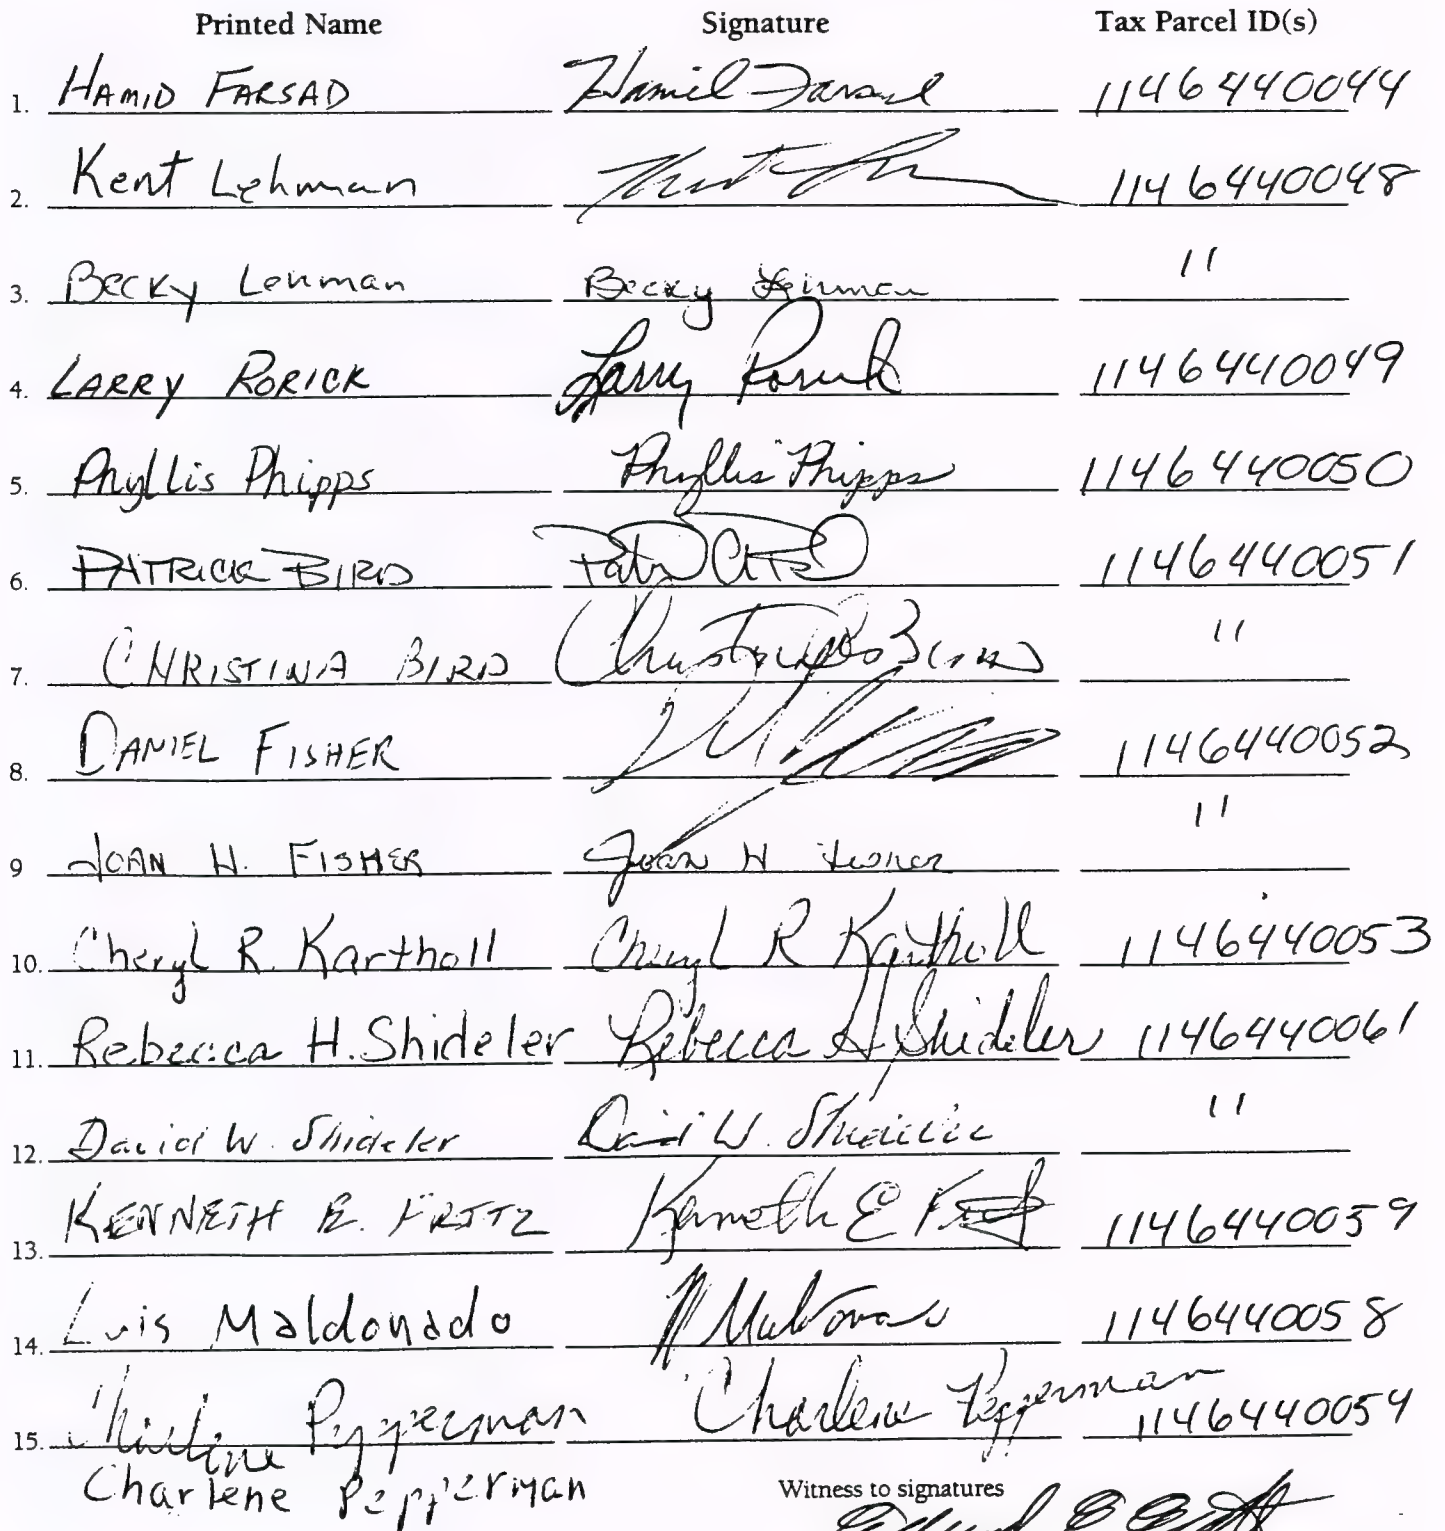 Printed Name Signature Tax Parcel ID(s)
1. HAMID FARSAD Hamid Farsad 1146440044
2. Kent Lehman Kent 1146440048
3. Becky Lehman Becky Lehman 11
4. LARRY RORICK Larry Rorick 1146440049
5. Phyllis Phipps Phyllis Phipps 1146440050
6. PATRICK BIRD 1146440051
7. CHRISTINA BIRD 11
8. DANIEL FISHER 1146440052
9 JOAN H. FISHER Joan H Fisher 11
10. Cheryl R. Kartholl Cheryl R Kartholl 1146440053
11. Rebecca H. Shideler Rebecca H. Shideler 1146440061
12. David W. Shideler David W. Shideler 11
13. KENNETH E. FRITZ Kenneth E Fritz 1146440059
14. Luis Maldonado Maldonado 1146440058
15. Charlene Pepperman Charlene Pepperman 1146440054
Charlene Pepperman
Witness to signatures